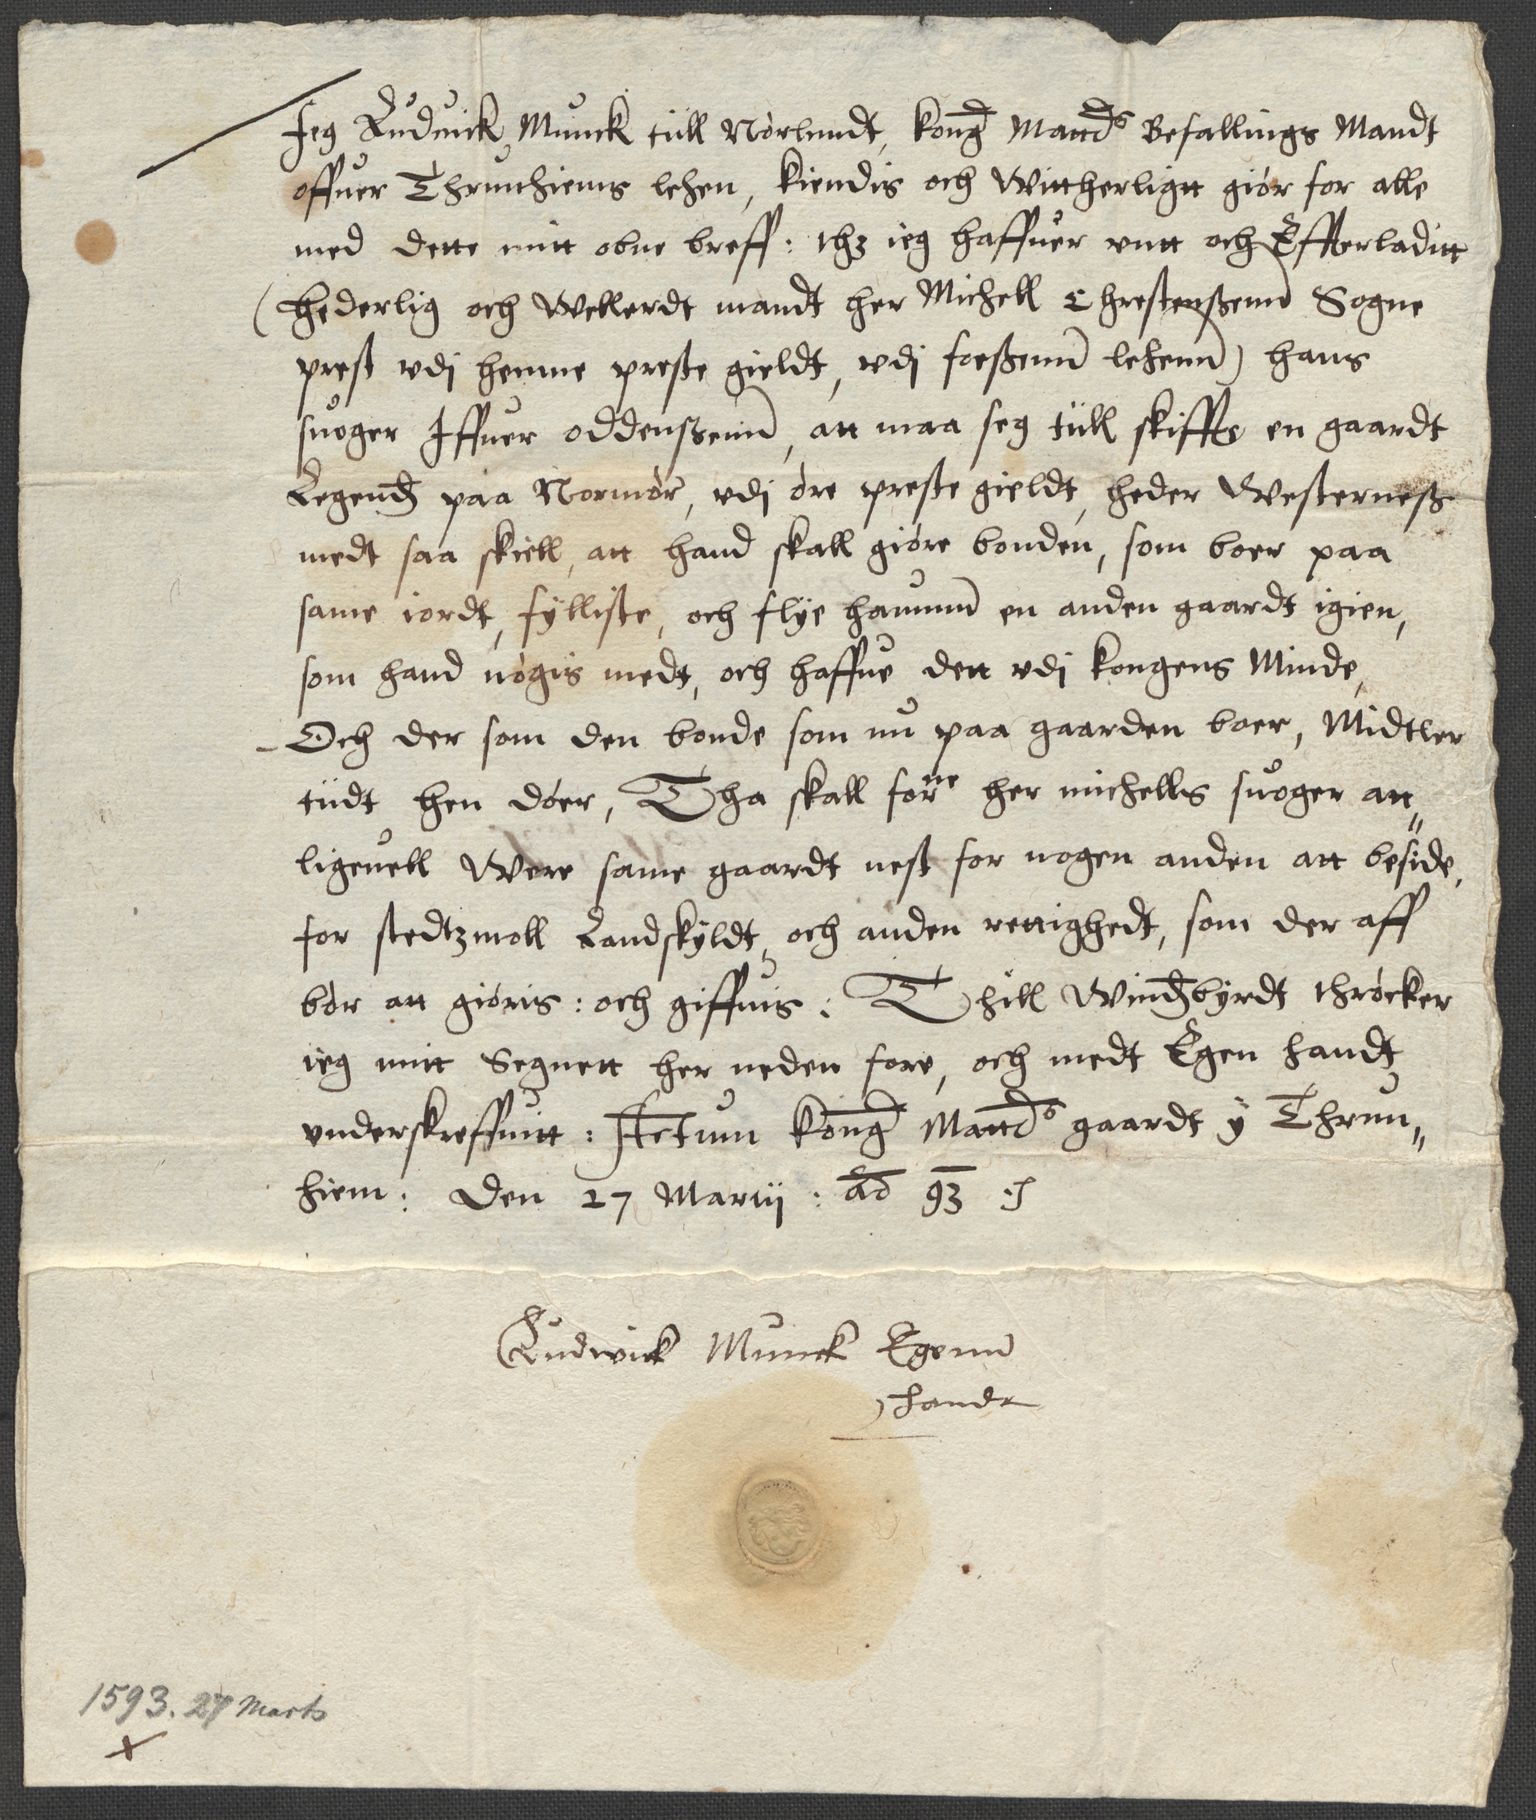 Jeg Luduick Munck till Nørlundt, kong Mattds Befallings Mandt
offuer Thrunhiems lehen, kiendis och Wittherligtt giør for alle
med dette mitt obne breff: thz ieg haffuer untt och Efterladitt
(hederlig och Wellerdt mandt her Michell Chrestenßenn Sogne
prest udj hemne preste gieldt, udj foeßenn lehenn) hans
suoger Iffuer oddenßenn, att maa seg till skiffte en gaardt
Legend paa Normør, udj øre preste gieldt, heder Westerneß
medt saa skiell, att hand skall giøre bonden, som boer paa
same iordt, fylliste, och flye hannum en anden gaardt igien,
som hand nøgis medt, och haffue dett udj kongens Minde,
Och der som den bonde som nu paa gaarden boer, Midtler
tiidt hen døer, Tha skall forne her michells suoger att„
ligeuell Were same gaardt nest for nogen anden att beside,
for stedtzmoll Landskyldt, och anden rettighedt, som der aff
bør att giøris: och giffuis. Thill Windbyrdt thrøcker
ieg mitt Segnett her neden fore, och medt Egen handt
underskreffuitt: Actum kong Mattds gaardt y Thrun„
hiem: Den 27 Martij: ad 93 :/
Ludwick Munck Egenn
handt
1593. 27 Marts